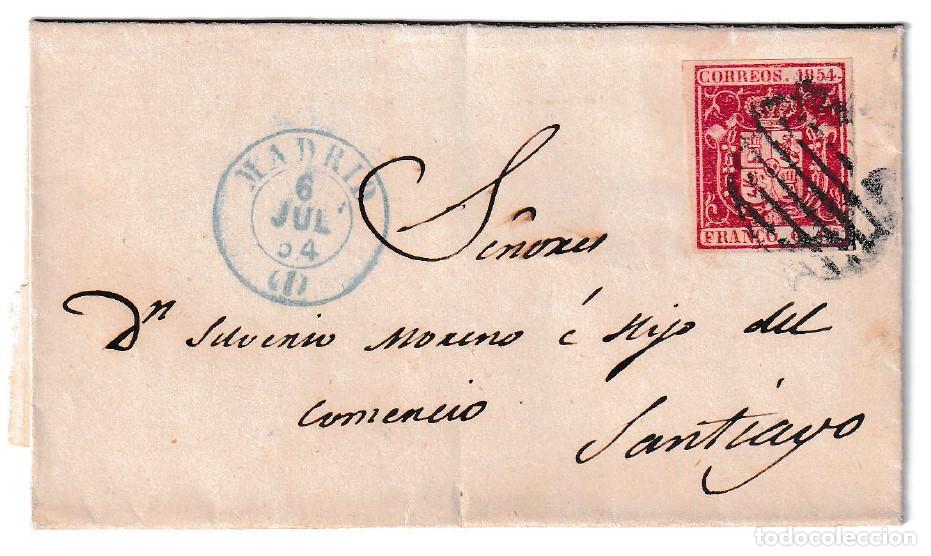 CORREOS. 1854.
FRANCO.
MADRID
6
JUL
54
(1)
Señores
Dn Silverio Moreno é Hijo del
Comercio
Santiago
todocoleccion
todocoleccion.net